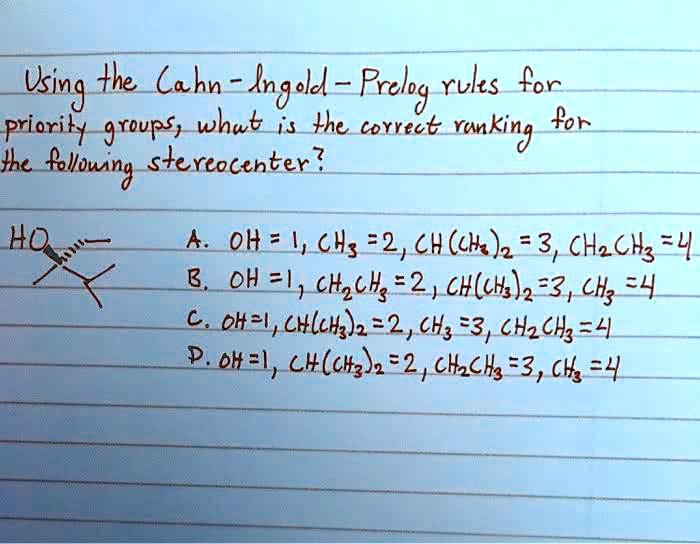 Using the Cahn-Ingold-Prelog rules for
priority groups, what is the correct ranking for
the following stereocenter?
HO
A. OH = 1, CH₃ = 2, CH(CH₃)₂ = 3, CH₂CH₃ = 4
B. OH = 1, CH₂CH₃ = 2, CH(CH₃)₂ = 3, CH₃ = 4
C. OH = 1, CH(CH₃)₂ = 2, CH₃ = 3, CH₂CH₃ = 4
D. OH = 1, CH(CH₃)₂ = 2, CH₂CH₃ = 3, CH₃ = 4